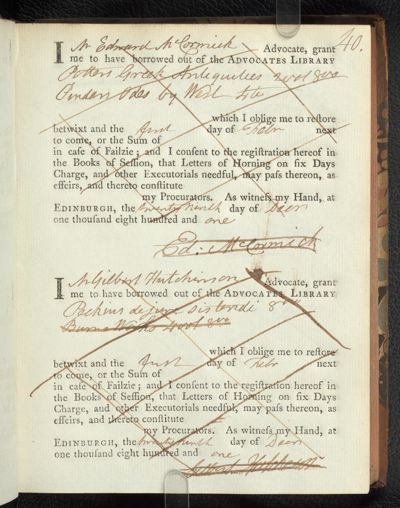 40.
I Mr Edward McCormick Advocate, grant
me to have borrowed out of the ADVOCATES LIBRARY
Potters Greek Antiquities 2 vol 8vo
Pindars Odes by West 4to
which I oblige me to reſtore
betwixt and the first day of Febr next
to come, or the Sum of
in caſe of Failzie; and I conſent to the regiſtration hereof in
the Books of Seſſion, that Letters of Horning on ſix Days
Charge, and other Executorials needful, may paſs thereon, as
effeirs, and thereto conſtitute
my Procurators. As witneſs my Hand, at
EDINBURGH, the twenty ninth day of Decr
one thouſand eight hundred and one
Ed: McCormick
I Mr Gilbert Hutchinson Advocate, grant
me to have borrowed out of the ADVOCATES LIBRARY
Peckius de jure sistendi 8vo
Burns Works 4 vol 8vo
which I oblige me to reſtore
betwixt and the first day of Febr next
to come, or the Sum of
in caſe of Failzie; and I conſent to the regiſtration hereof in
the Books of Seſſion, that Letters of Horning on ſix Days
Charge, and other Executorials needful, may paſs thereon, as
effeirs, and thereto conſtitute
my Procurators. As witneſs my Hand, at
EDINBURGH, the twenty ninth day of Decr
one thouſand eight hundred and one
Gilbert Hutchinson